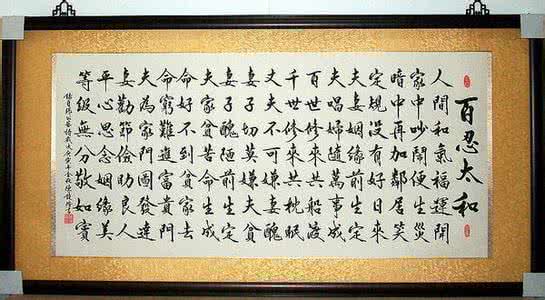 百忍太和
人間和氣福運開
家中吵鬧便生災
暗中再加鄰居笑
定規沒有好日來
夫妻姻緣前生定
夫唱婦隨萬事成
百世修來共船渡
千世修來共枕眠
丈夫不可嫌妻醜
妻子切莫嫌夫貧
妻子醜陋前生定
夫家貧苦命生成
命好不到貧家去
命窮難進富貴門
夫為家門圖發達
妻勤節儉助良人
平心思念姻緣美
等級無分敬如賓